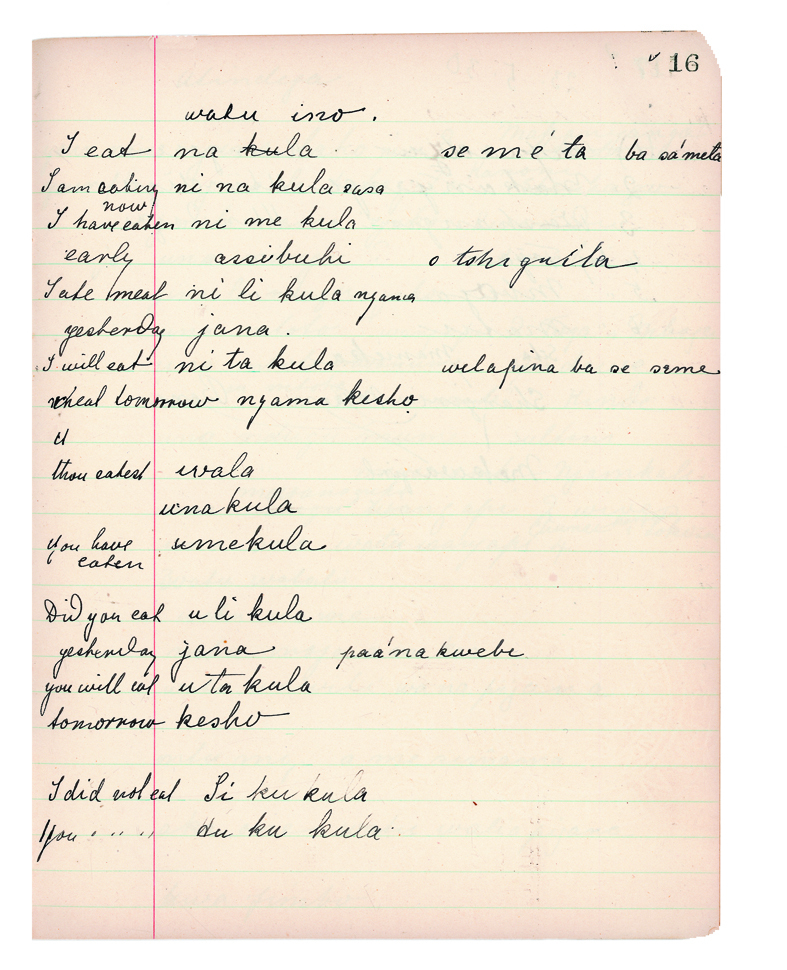 16
watu ino.
I eat na kula se mé ta ba sámeta
I am eating ni na kula sasa
now
I have eaten ni me kula
early assubuhi o tshigúíla
I ate meat ni li kula nyama
yesterday jana.
I will eat ni ta kula welapina ba se seme
meat tomorrow nyama kesho
u
thou eatest uwala
unakula
you have umekula
eaten
Did you eat u li kula
yesterday jana paánakwebe
you will eat u ta kula
tomorrow kesho
I did not eat Si ku kula
You " " " " Hu ku kula